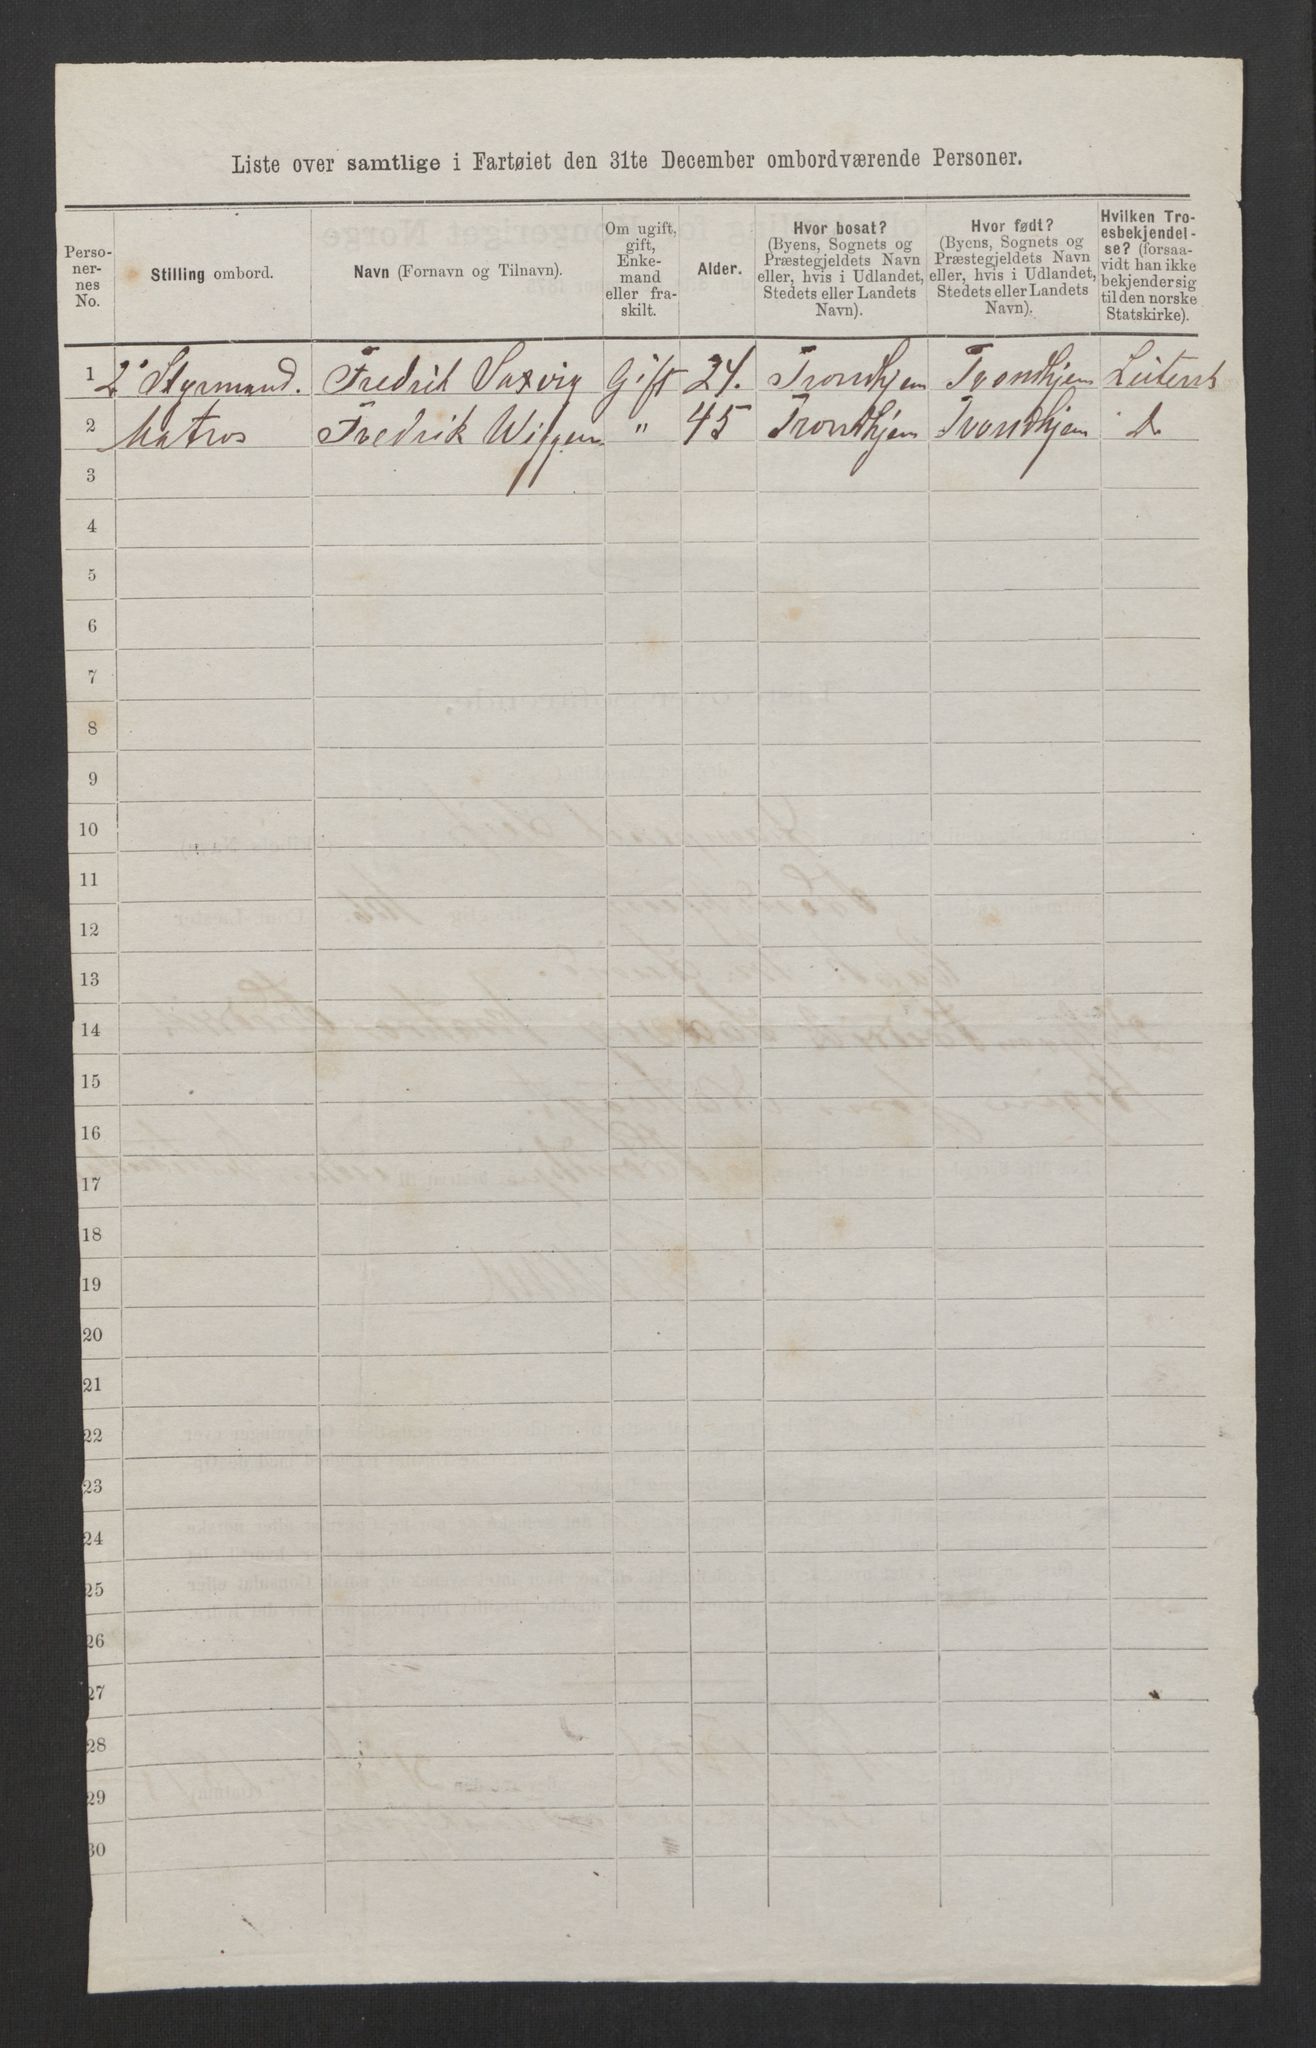 Liste over samtlige i Fartøiet den 31te December ombordværende Personer.
Perso-
ner-
nes
No.
Stilling ombord.
Navn (Fornavn og Tilnavn).
Om ugift,
gift,
Enke-
mand
eller fra-
skilt.
Alder.
Hvor bosat?
(Byens, Sognets og
Præstegjeldets Navn
eller, hvis i Udlandet,
Stedets eller Landets
Navn).
Hvor født?
(Byens, Sognets og
Præstegjeldets Navn
eller, hvis i Udlandet,
Stedets eller Landets
Navn).
Hvilken Tro-
esbekjendel-
se? (forsaa-
vidt han ikke
bekjender sig
til den norske
Statskirke).
1 2' Styrmand. Fredrik Saxvig Gift 24. Trondhjem Trondhjem
2 Matros Fredrik Wiggen " 45 Trondhjem Trondhjem Do
3
4
5
6
7
8
9
10
11
12
13
14
15
16
17
18
19
20
21
22
23
24
25
26
27
28
29
30